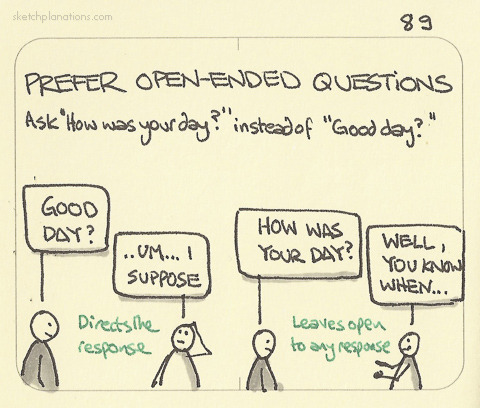 sketchplanations.com
89
PREFER OPEN-ENDED QUESTIONS
Ask "How was your day?" instead of "Good day?"
GOOD
DAY?
..UM... I
SUPPOSE
Directs the
response
HOW WAS
YOUR DAY?
WELL,
YOU KNOW
WHEN...
Leaves open
to any response